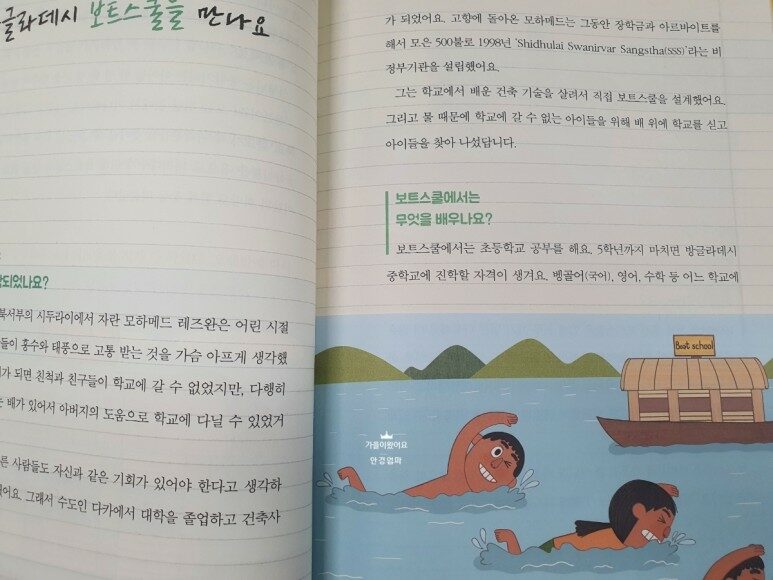 글라데시 보트스쿨을 만나요
되었나요?
북서부의 시두라이에서 자란 모하메드 레즈완은 어린 시절
들이 홍수와 태풍으로 고통 받는 것을 가슴 아프게 생각했
가 되면 친척과 친구들이 학교에 갈 수 없었지만, 다행히
는 배가 있어서 아버지의 도움으로 학교에 다닐 수 있었거
른 사람들도 자신과 같은 기회가 있어야 한다고 생각하
어요. 그래서 수도인 다카에서 대학을 졸업하고 건축사
가 되었어요. 고향에 돌아온 모하메드는 그동안 장학금과 아르바이트를
해서 모은 500불로 1998년 'Shidhulai Swanirvar Sangstha(SSS)'라는 비
정부기관을 설립했어요.
그는 학교에서 배운 건축 기술을 살려서 직접 보트스쿨을 설계했어요.
그리고 물 때문에 학교에 갈 수 없는 아이들을 위해 배 위에 학교를 싣고
아이들을 찾아 나섰답니다.
보트스쿨에서는
무엇을 배우나요?
보트스쿨에서는 초등학교 공부를 해요. 5학년까지 마치면 방글라데시
중학교에 진학할 자격이 생겨요. 벵골어(국어), 영어, 수학 등 어느 학교에
Boat school
가을이왔어요
안경엄마